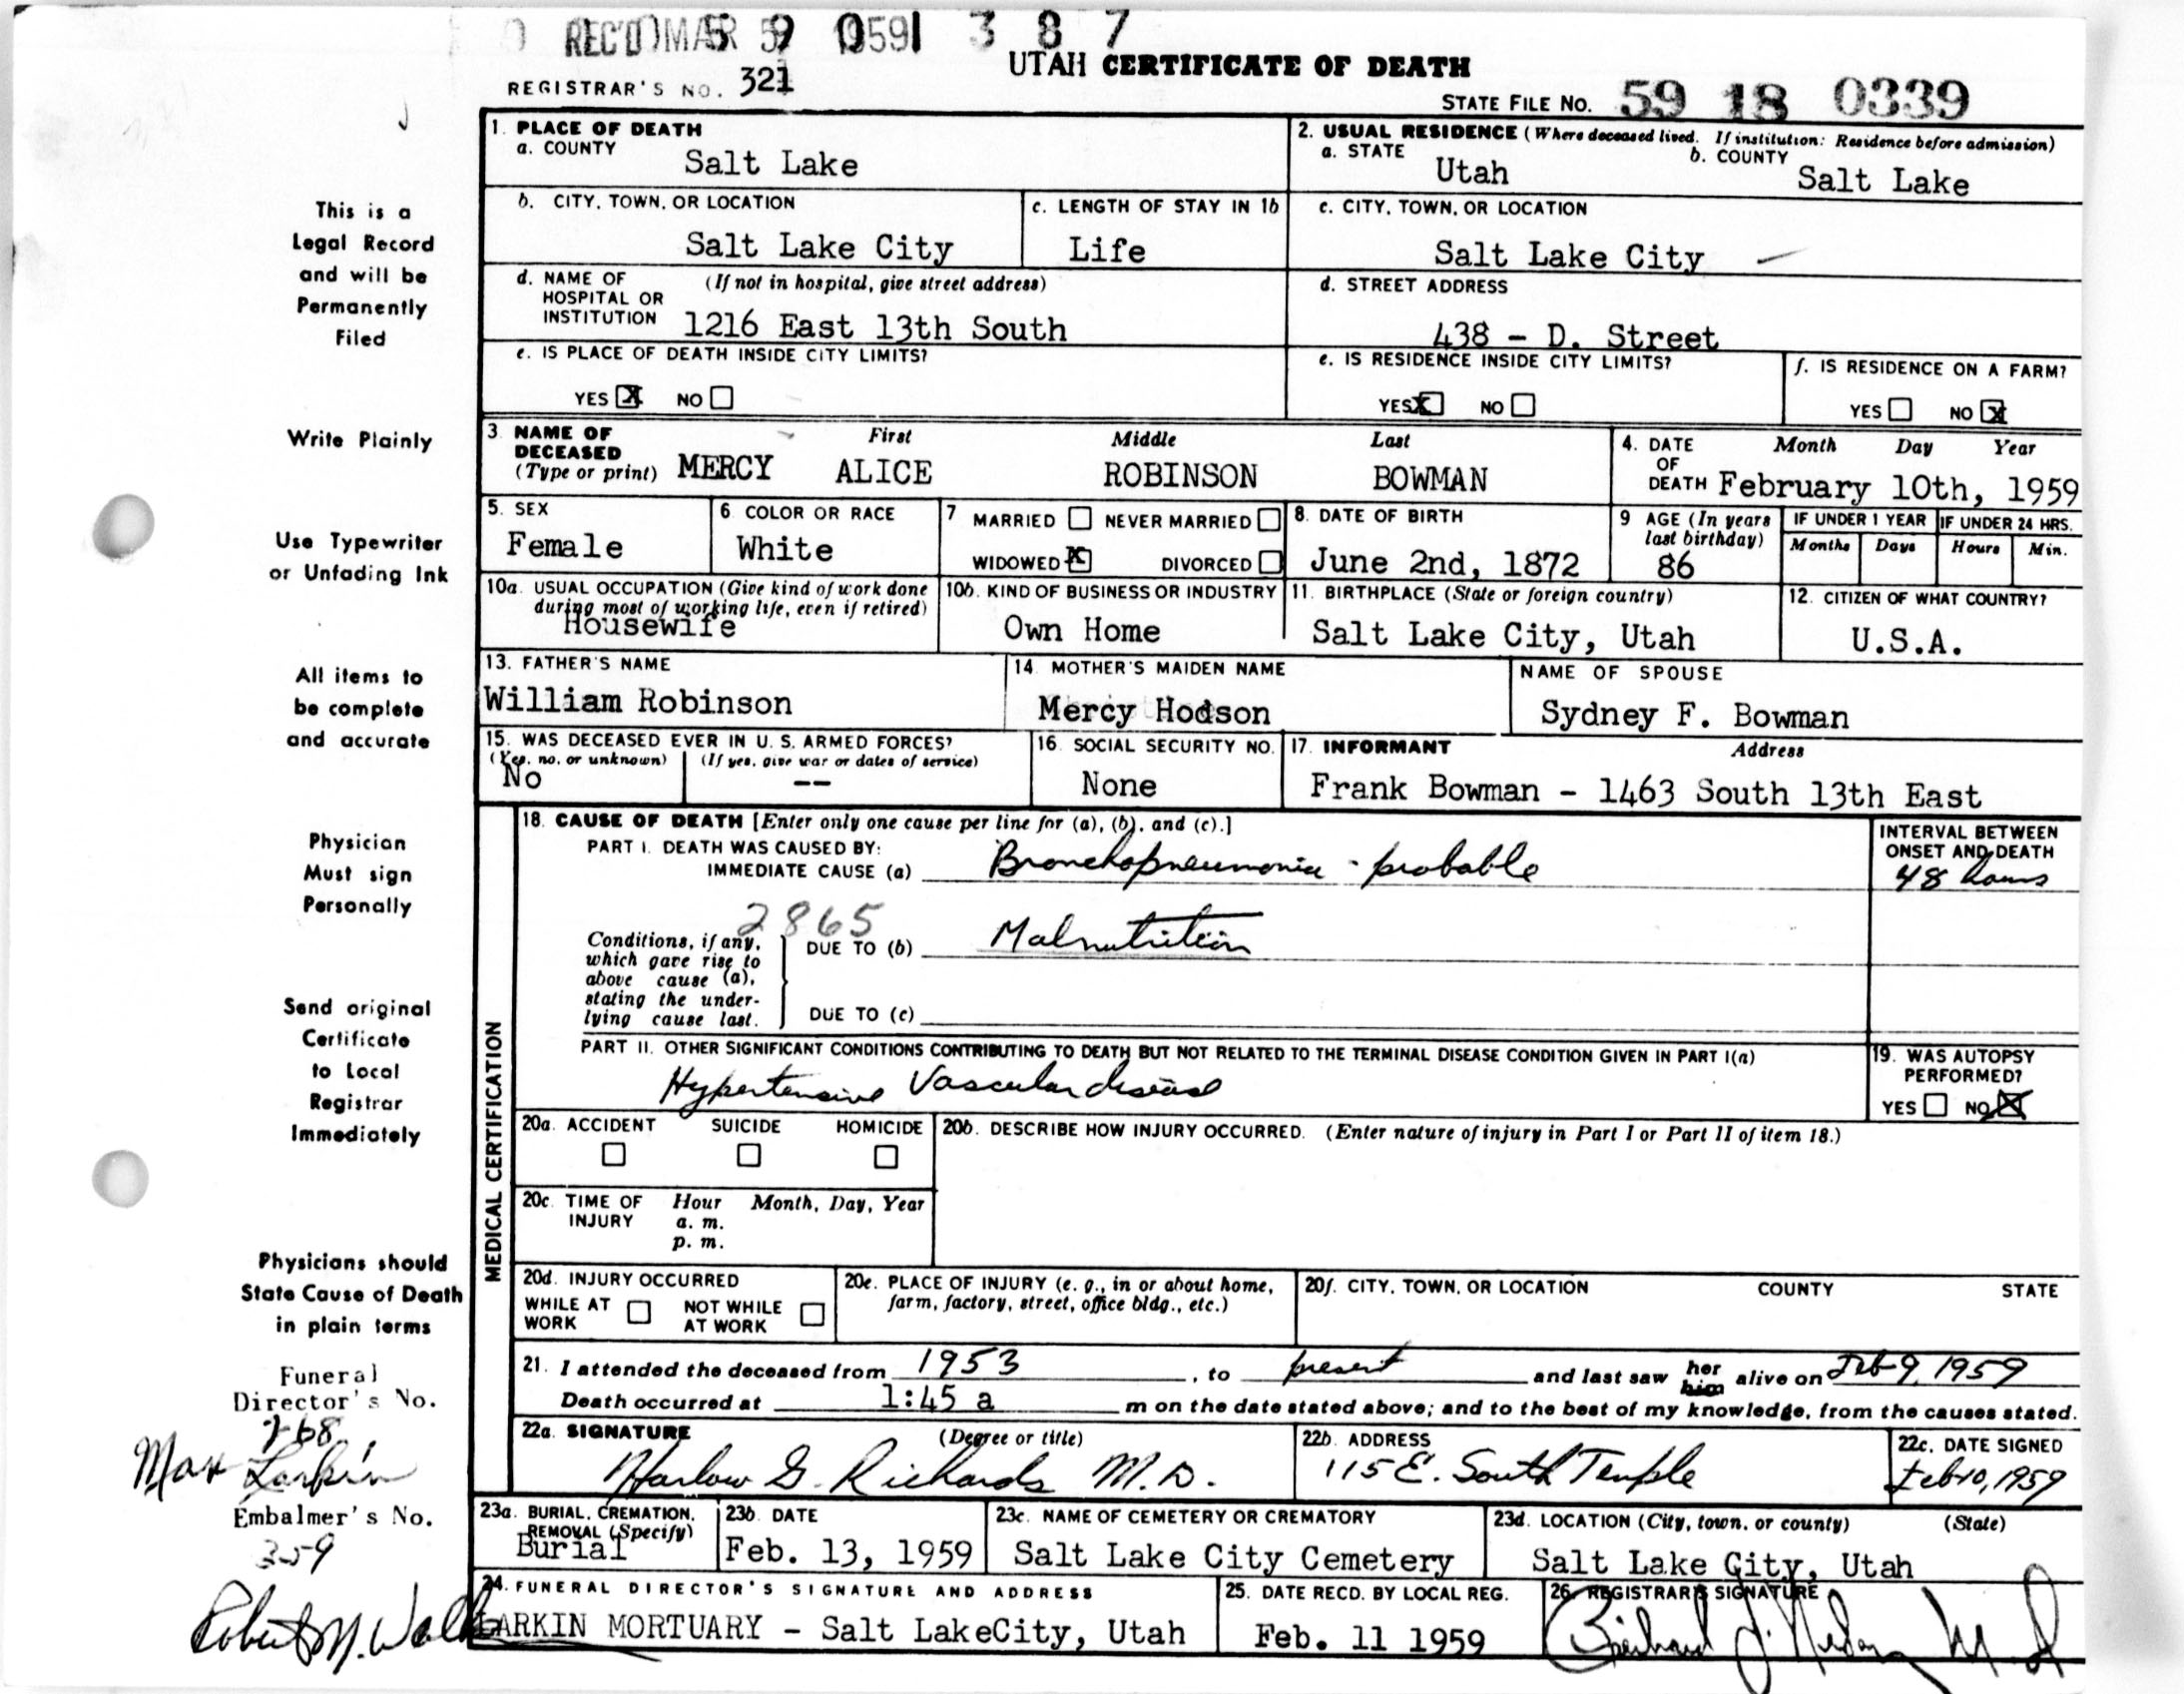 REC'D MAR 9 1959 3 8 7
UTAH CERTIFICATE OF DEATH
REGISTRAR'S NO. 321
STATE FILE NO. 59 18 0339
This is a
Legal Record
and will be
Permanently
Filed
Write Plainly
Use Typewriter
or Unfading Ink
All items to
be complete
and accurate
Physician
Must sign
Personally
Send original
Certificate
to Local
Registrar
Immediately
Physicians should
State Cause of Death
in plain terms
Funeral
Director's No.
268
Max Larkin
Embalmer's No.
359
Robert N.
1. PLACE OF DEATH
a. COUNTY
Salt Lake
2. USUAL RESIDENCE (Where deceased lived. If institution: Residence before admission)
a. STATE
Utah
b. COUNTY
Salt Lake
b. CITY, TOWN, OR LOCATION
Salt Lake City
c. LENGTH OF STAY IN 1b
Life
c. CITY, TOWN, OR LOCATION
Salt Lake City
d. NAME OF (If not in hospital, give street address)
HOSPITAL OR
INSTITUTION 1216 East 13th South
d. STREET ADDRESS
438 - D. Street
e. IS PLACE OF DEATH INSIDE CITY LIMITS?
YES X NO
e. IS RESIDENCE INSIDE CITY LIMITS?
YES X NO
f. IS RESIDENCE ON A FARM?
YES NO X
3. NAME OF DECEASED (Type or print) First Middle Last
MERCY ALICE ROBINSON BOWMAN
4. DATE OF DEATH Month Day Year
February 10th, 1959
5. SEX
Female
6. COLOR OR RACE
White
7 MARRIED NEVER MARRIED
WIDOWED X DIVORCED
8. DATE OF BIRTH
June 2nd, 1872
9 AGE (In years
last birthday)
86
IF UNDER 1 YEAR IF UNDER 24 HRS.
Months Days Hours Min.
10a. USUAL OCCUPATION (Give kind of work done
during most of working life, even if retired)
Housewife
10b. KIND OF BUSINESS OR INDUSTRY
Own Home
11. BIRTHPLACE (State or foreign country)
Salt Lake City, Utah
12. CITIZEN OF WHAT COUNTRY?
U.S.A.
13. FATHER'S NAME
William Robinson
14. MOTHER'S MAIDEN NAME
Mercy Hodson
NAME OF SPOUSE
Sydney F. Bowman
15. WAS DECEASED EVER IN U. S. ARMED FORCES?
(Yes, no, or unknown) (If yes, give war or dates of service)
No --
16. SOCIAL SECURITY NO.
None
17. INFORMANT Address
Frank Bowman - 1463 South 13th East
MEDICAL CERTIFICATION
18. CAUSE OF DEATH [Enter only one cause per line for (a), (b), and (c).]
PART I. DEATH WAS CAUSED BY:
IMMEDIATE CAUSE (a) Bronchopneumonia - probable
INTERVAL BETWEEN
ONSET AND DEATH
48 hours
2865
Conditions, if any,
which gave rise to
above cause (a),
stating the under-
lying cause last.
DUE TO (b) Malnutrition
DUE TO (c)
PART II. OTHER SIGNIFICANT CONDITIONS CONTRIBUTING TO DEATH BUT NOT RELATED TO THE TERMINAL DISEASE CONDITION GIVEN IN PART I(a)
Hypertensive Vascular disease
19. WAS AUTOPSY
PERFORMED?
YES NO X
20a. ACCIDENT SUICIDE HOMICIDE
20b. DESCRIBE HOW INJURY OCCURRED. (Enter nature of injury in Part I or Part II of item 18.)
20c. TIME OF Hour Month, Day, Year
INJURY a. m.
p. m.
20d. INJURY OCCURRED
WHILE AT WORK NOT WHILE AT WORK
20e. PLACE OF INJURY (e. g., in or about home,
farm, factory, street, office bldg., etc.)
20f. CITY, TOWN, OR LOCATION COUNTY STATE
21. I attended the deceased from 1953, to present and last saw her him alive on Feb 9, 1959
Death occurred at 1:45 a m on the date stated above; and to the best of my knowledge, from the causes stated.
22a. SIGNATURE (Degree or title)
Harlow G. Richards M.D.
22b. ADDRESS
115 E. South Temple
22c. DATE SIGNED
Feb 10, 1959
23a. BURIAL, CREMATION,
REMOVAL (Specify)
Burial
23b. DATE
Feb. 13, 1959
23c. NAME OF CEMETERY OR CREMATORY
Salt Lake City Cemetery
23d. LOCATION (City, town, or county) (State)
Salt Lake City, Utah
24. FUNERAL DIRECTOR'S SIGNATURE AND ADDRESS
LARKIN MORTUARY - Salt LakeCity, Utah
25. DATE RECD. BY LOCAL REG.
Feb. 11 1959
26. REGISTRAR'S SIGNATURE